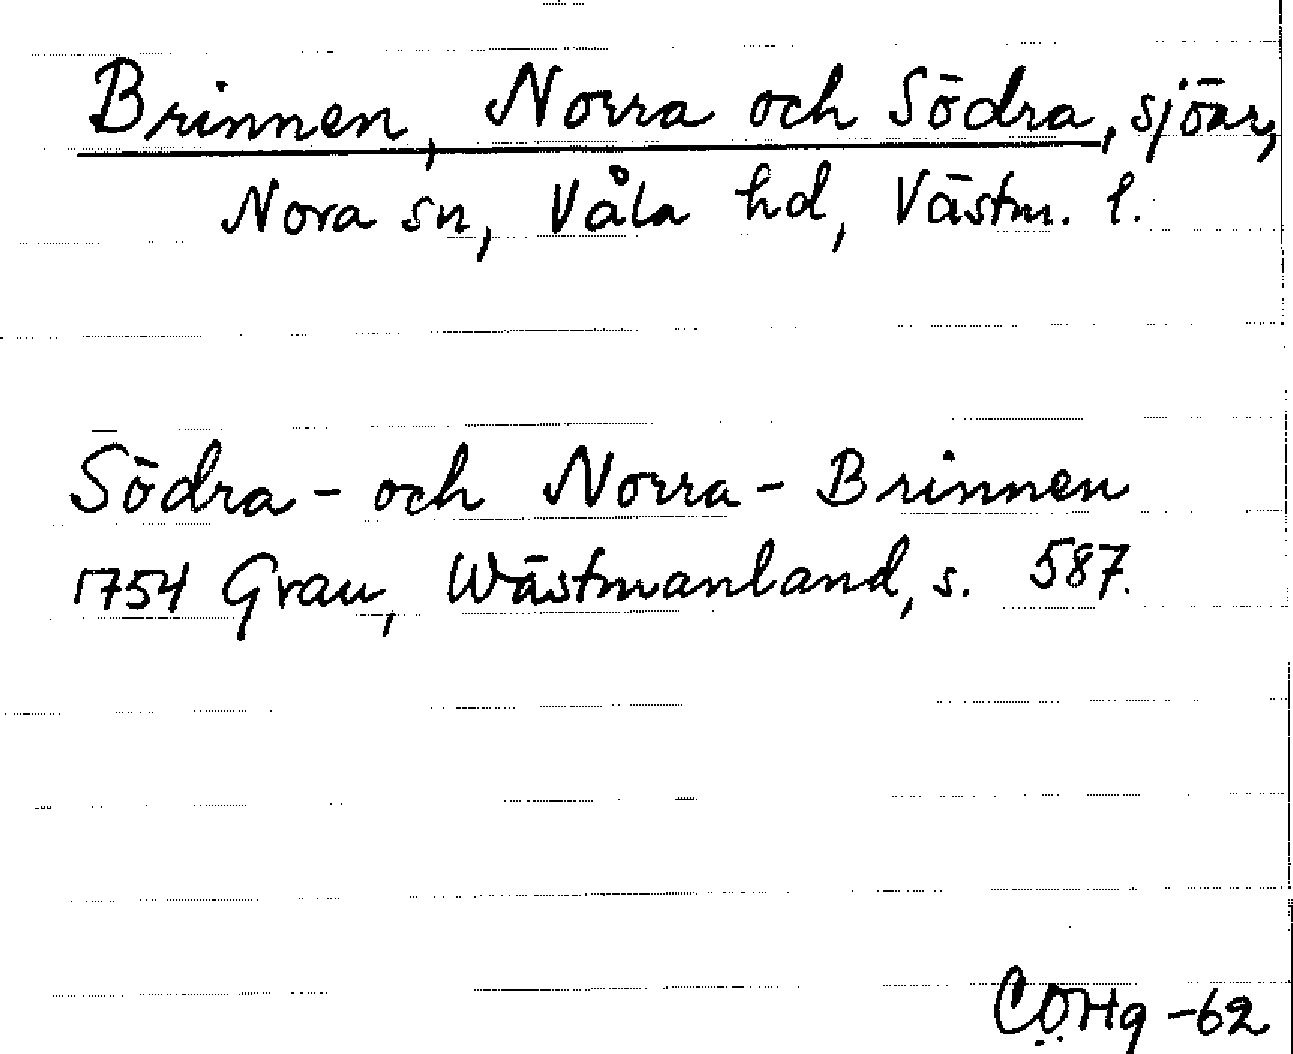 Brinnen, Norra och Södra, sjöar,
Nora sn, Våla hd, Västm. l.
Södra- och Norra- Brinnen
1754 Grau, Wästmanland, s. 587.
CÖHg -62